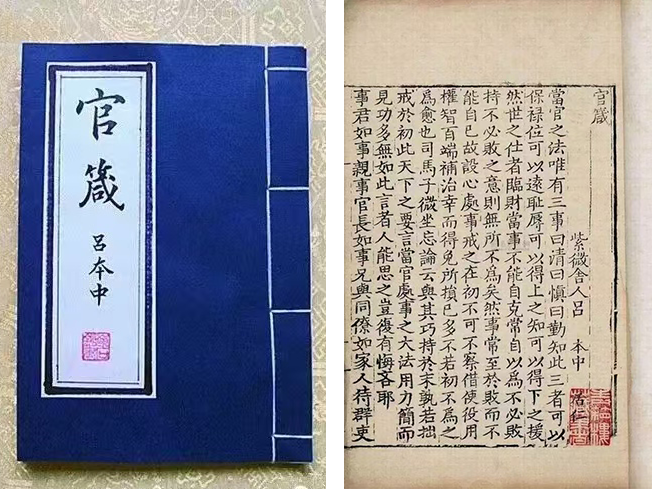 官箴
吕本中
官箴
紫微舍人吕 本中 居仁
當官之法唯有三事曰清曰慎曰勤知此三者可以
保禄位可以遠耻辱可以得上之知可以得下之援
然世之仕者臨財當事不能自克常自以爲不必敗
持不必敗之意則無所不爲矣然事常至於敗而不
能自已故設心處事戒之在初不可不察借使役用
權智百端補治幸而得免所損已多不若初不爲之
爲愈也司馬子微坐忘論云與其巧持於末孰若拙
戒於初此天下之要言當官處事之大法用力簡而
見功多無如此言者人能思之豈復有悔吝耶
事君如事親事官長如事兄與同僚如家人待群吏